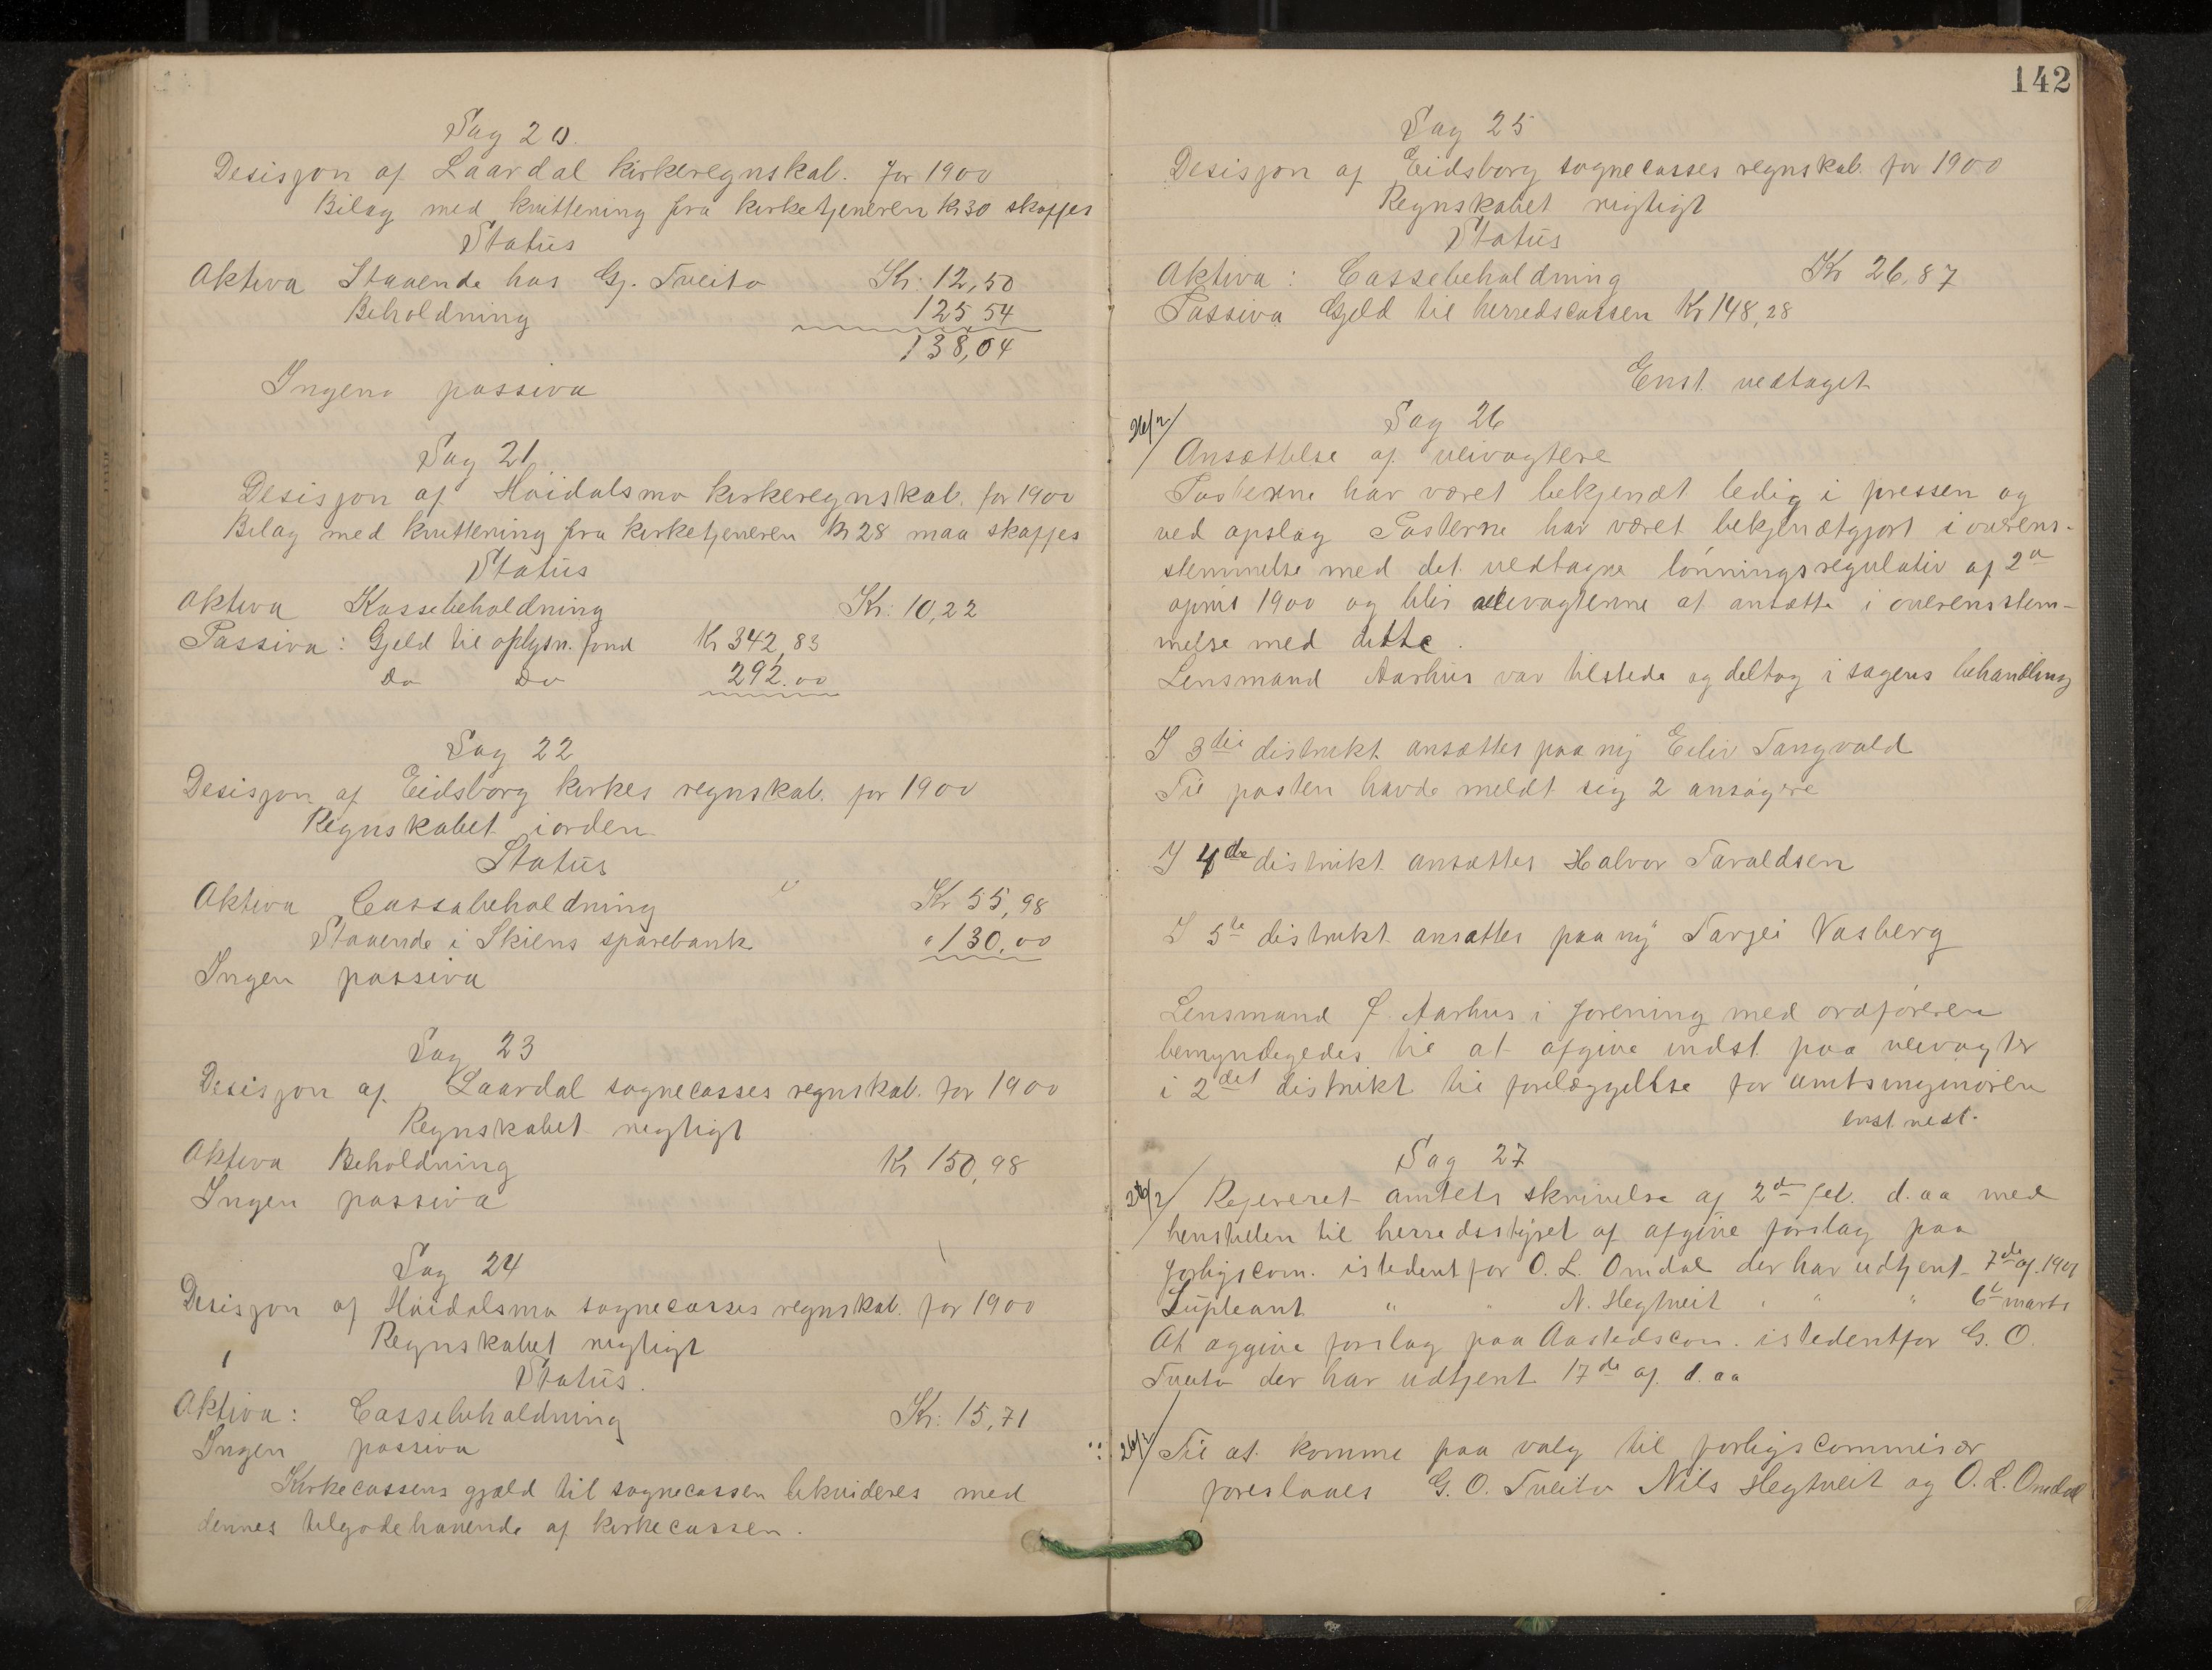 Sag 20.
Desisjon af Laardal kirkeregnskab. for 1900
Bilag med kvittering fra kirketjeneren Kr 30 skaffes
Status
Aktiva Staaende hos Gj. Tveito Kr: 12,50
Beholdning 125,54
138,04
Ingen passiva
Sag 21
Desisjon af Høidalsmo kirkeregnskab. for 1900
Bilag med kvittering fra kirketjeneren Kr 28 maa skaffes
Status
Aktiva Kassebeholdning Kr: 10,22
Passiva: Gjeld til oplysn. fond Kr 342,83
Do Do 292.00
Sag 22
Desisjon af Eidsborg kirkes regnskab. for 1900
Regnskabet iorden
Status
Aktiva Cassabeholdning Kr 55,98
Staaende i Skiens sparebank " 130,00
Ingen passiva
Sag 23
Desisjon af Laardal sognecasses regnskab. for 1900
Regnskabet rigtigt
Aktiva Beholdning Kr 150,98
Ingen passiva
Sag 24
Desisjon af Høidalsmo sognecasses regnskab. for 1900
Regnskabet rigtigt
Status.
Aktiva: Cassebeholdning Kr: 15,71
Ingen passiva
Kirkecassens gjæld til sognecassen likvideres med
dennes tilgodehavende af kirkecassen.
142
Sag 25
Desisjon af Eidsborg sognecasses regnskab. for 1900
Regnskabet rigtigt
Status
Aktiva: Cassebeholdning Kr 26,87
Passiva Gjeld til herredscassen Kr 148,28
Enst. vedtaget
Sag 26
26/2 Ansættelse af veivogtere
Posterne har været bekjendt ledig i pressen og
ved opslag Posterne har været bekjendtgjort i overens-
stemmelse med det vedtagne lønningsregulativ af 2den
april 1900 og blir veivogterne at ansætte i overensstem-
melse med dette.
Lensmand Aarhus var tilstede og deltog i sagens behandling
I 3die distrikt ansættes paa ny Eiliv Tangvald
Til posten havde meldt sig 2 ansøgere
I 4de distrikt ansættes Halvor Taraldsen
I 5te distrikt ansættes paa ny Tarjei Vasberg
Lensmand J. Aarhus i forening med ordføreren
bemyndigedes til at afgive indst. paa veivogter
i 2det distrikt til forelæggelse for amtsingeniøren
enst. vedt.
Sag 27
26/2 Refereret amtets skrivelse af 2den feb. d. aa med
henstillen til herredsstyret af afgive forslag paa
forligscom. istedentfor O. L. Omdal der har udtjent 7de af. 1901
Supleant " " N. Hegtveit " " " 6te marts
At afgive forslag paa Aastedscom. istedentfor G. O.
Tveito der har udtjent 17de af. d. aa
26/2 Til at komme paa valg til forligscommisær
foreslaaes G. O. Tveito Nils Hegtveit og O. L. Omdal